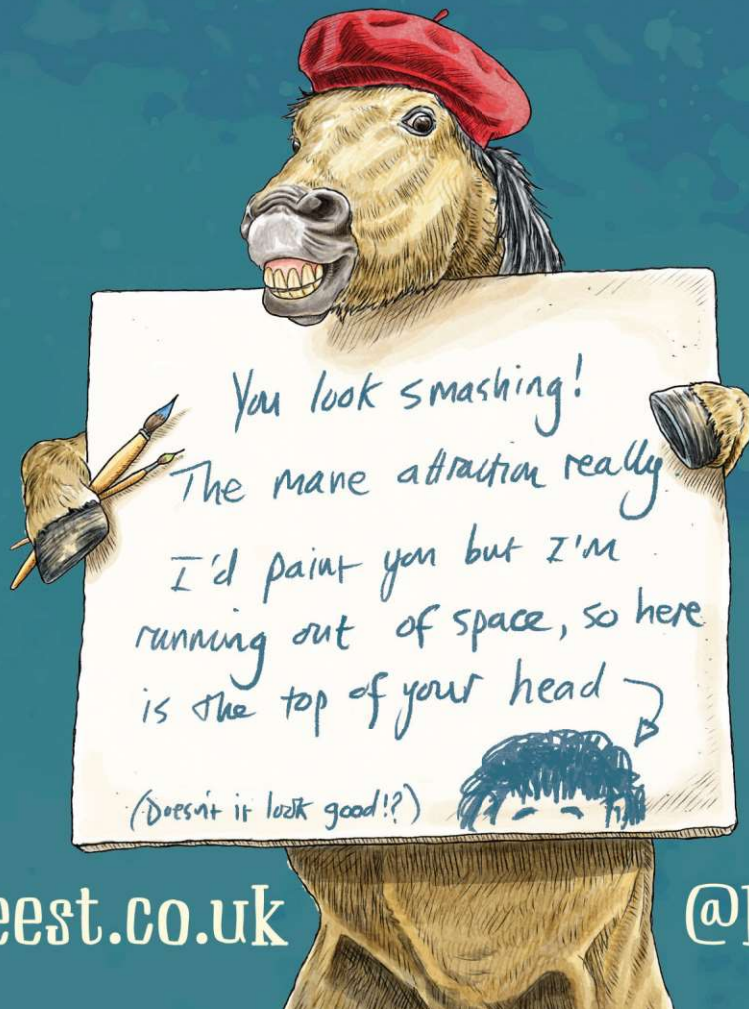 You look smashing!
The mane attraction really
I'd paint you but I'm
running out of space, so here
is the top of your head
(Doesn't it look good!?)
eest.co.uk
@